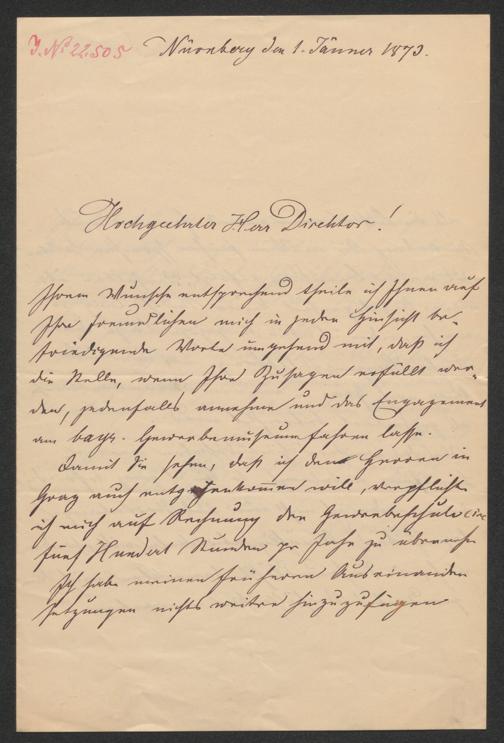 J. № 22.505 Nürnberg den 1. Jänner 1873.
Hochgeehrter Herr Direktor!
Ihrem Wunsche entsprechend theile ich Ihnen auf
Ihre freundlichen mich in jeder Hinsicht be-
friedigende Worte umgehend mit, daß ich
die Stelle, wenn Ihre Zusagen erfüllt wer-
den, jedenfalls annehme und das Engagement
am bayr. Gewerbemuseum fahren lasse.
Damit Sie sehen, daß ich den Herren in
Graz auch entgegenkommen will, verpflichte
ich mich auf Rechnung der Gewerbeschule
fünf Hundert Stunden pr Jahr zu übernehmen
Ich habe meinen früheren Auseinander
setzungen nichts weitere hinzuzufügen